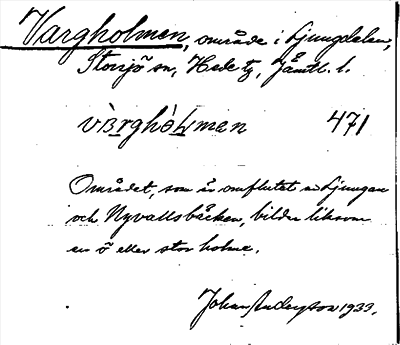 Vargholmen, område i Ljungdalen,
Storsjö sn, Hede tg, Jämtl. l.
471
Området, som är omflutet av Ljungan
och Nyvallsbäcken, bildar liksom
en ö eller stor holme.
Johan Andersson 1933.